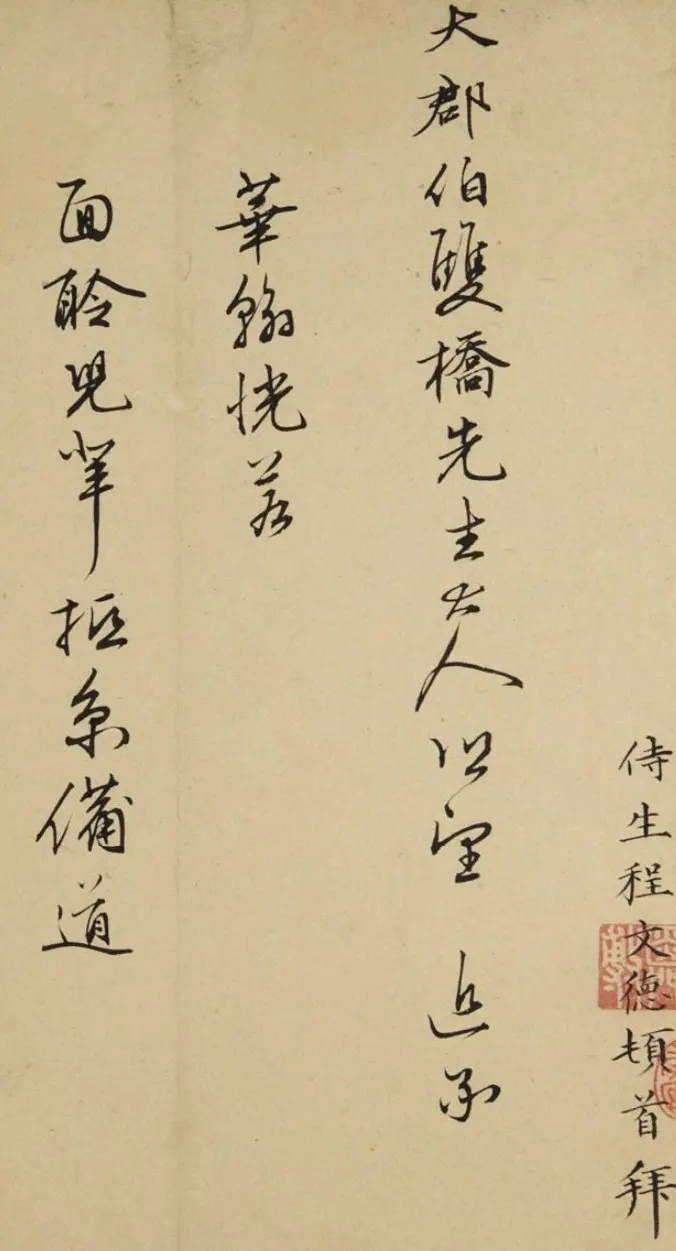 侍生程文德頓首拜
大郡伯雙橋先生大人望 近承
華翰恍若
面聆兒輩抵京備道